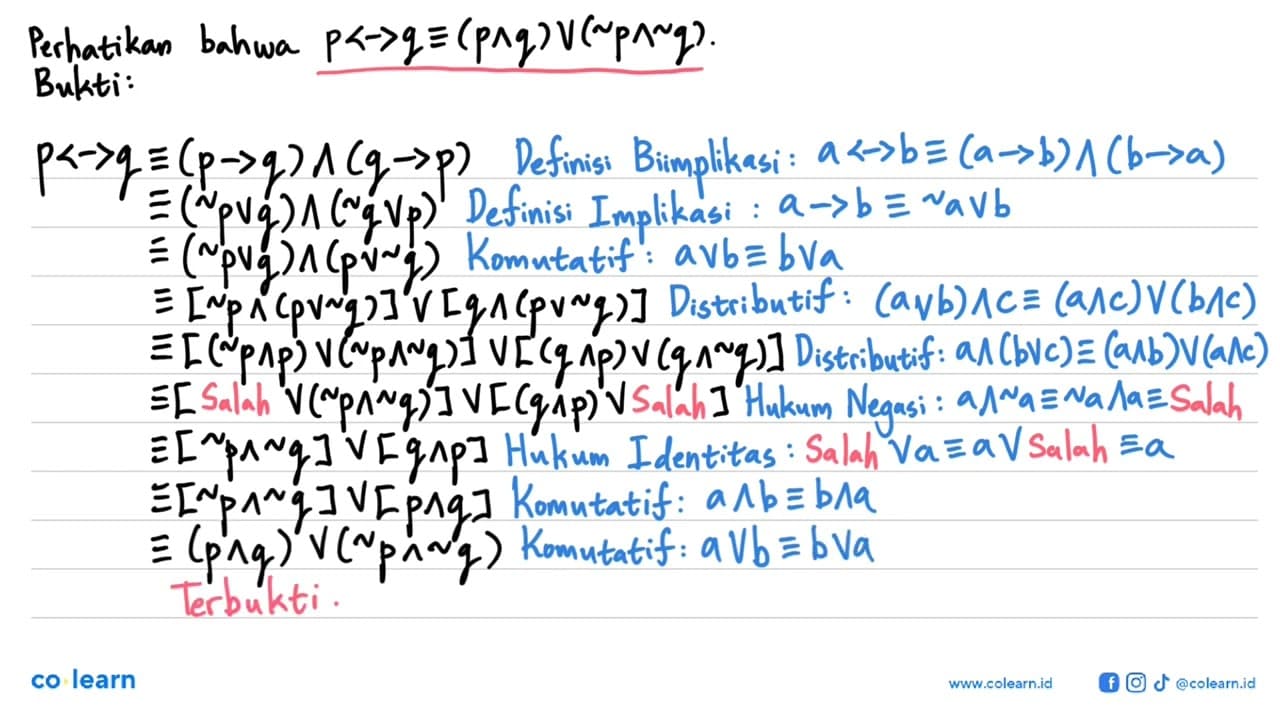 Perhatikan bahwa p<->q≡(p∧q)∨(~p∧~q).
Bukti:
p<->q≡(p->q)∧(q->p) Definisi Biimplikasi: a<->b≡(a->b)∧(b->a)
≡(~p∨q)∧(~q∨p) Definisi Implikasi: a->b≡~a∨b
≡(~p∨q)∧(p∨~q) Komutatif: a∨b≡b∨a
≡[~p∧(p∨~q)]∨[q∧(p∨~q)] Distributif: (a∨b)∧c≡(a∧c)∨(b∧c)
≡[(~p∧p)∨(~p∧~q)]∨[(q∧p)∨(q∧~q)] Distributif: a∧(b∨c)≡(a∧b)∨(a∧c)
≡[Salah∨(~p∧~q)]∨[(q∧p)∨Salah] Hukum Negasi: a∧~a≡~a∧a≡Salah
≡[~p∧~q]∨[q∧p] Hukum Identitas: Salah∨a≡a∨Salah≡a
≡[~p∧~q]∨[p∧q] Komutatif: a∧b≡b∧a
≡(p∧q)∨(~p∧~q) Komutatif: a∨b≡b∨a
Terbukti.
co learn www.colearn.id @colearn.id